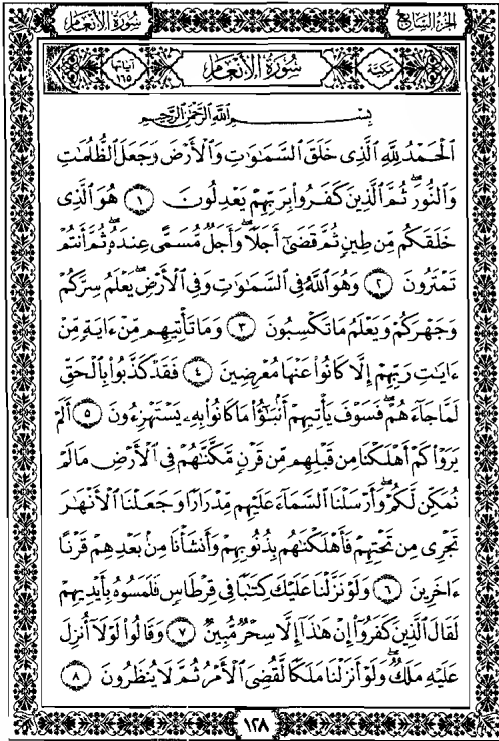 سُورَةُ الأَنْعَامِ
الجُزْءُ السَّابِعُ
آيَاتُهَا ١٦٥
سُورَةُ الأَنْعَامِ
مَكِّيَّة
بِسْمِ ٱللَّهِ ٱلرَّحْمَٰنِ ٱلرَّحِيمِ
ٱلْحَمْدُ لِلَّهِ ٱلَّذِى خَلَقَ ٱلسَّمَٰوَٰتِ وَٱلْأَرْضَ وَجَعَلَ ٱلظُّلُمَٰتِ
وَٱلنُّورَ ۖ ثُمَّ ٱلَّذِينَ كَفَرُوا۟ بِرَبِّهِمْ يَعْدِلُونَ ١ هُوَ ٱلَّذِى
خَلَقَكُم مِّن طِينٍ ثُمَّ قَضَىٰٓ أَجَلًا ۖ وَأَجَلٌ مُّسَمًّى عِندَهُۥ ۖ ثُمَّ أَنتُمْ
تَمْتَرُونَ ٢ وَهُوَ ٱللَّهُ فِى ٱلسَّمَٰوَٰتِ وَفِى ٱلْأَرْضِ ۖ يَعْلَمُ سِرَّكُمْ
وَجَهْرَكُمْ وَيَعْلَمُ مَا تَكْسِبُونَ ٣ وَمَا تَأْتِيهِم مِّنْ ءَايَةٍ مِّنْ
ءَايَٰتِ رَبِّهِمْ إِلَّا كَانُوا۟ عَنْهَا مُعْرِضِينَ ٤ فَقَدْ كَذَّبُوا۟ بِٱلْحَقِّ
لَمَّا جَآءَهُمْ ۖ فَسَوْفَ يَأْتِيهِمْ أَنۢبَٰٓؤُا۟ مَا كَانُوا۟ بِهِۦ يَسْتَهْزِءُونَ ٥ أَلَمْ
يَرَوْا۟ كَمْ أَهْلَكْنَا مِن قَبْلِهِم مِّن قَرْنٍ مَّكَّنَّٰهُمْ فِى ٱلْأَرْضِ مَا لَمْ
نُمَكِّن لَّكُمْ وَأَرْسَلْنَا ٱلسَّمَآءَ عَلَيْهِم مِّدْرَارًا وَجَعَلْنَا ٱلْأَنْهَٰرَ
تَجْرِى مِن تَحْتِهِمْ فَأَهْلَكْنَٰهُم بِذُنُوبِهِمْ وَأَنشَأْنَا مِنۢ بَعْدِهِمْ قَرْنًا
ءَاخَرِينَ ٦ وَلَوْ نَزَّلْنَا عَلَيْكَ كِتَٰبًا فِى قِرْطَاسٍ فَلَمَسُوهُ بِأَيْدِيهِمْ
لَقَالَ ٱلَّذِينَ كَفَرُوٓا۟ إِنْ هَٰذَآ إِلَّا سِحْرٌ مُّبِينٌ ٧ وَقَالُوا۟ لَوْلَآ أُنزِلَ
عَلَيْهِ مَلَكٌ ۖ وَلَوْ أَنزَلْنَا مَلَكًا لَّقُضِىَ ٱلْأَمْرُ ثُمَّ لَا يُنظَرُونَ ٨
١٢٨